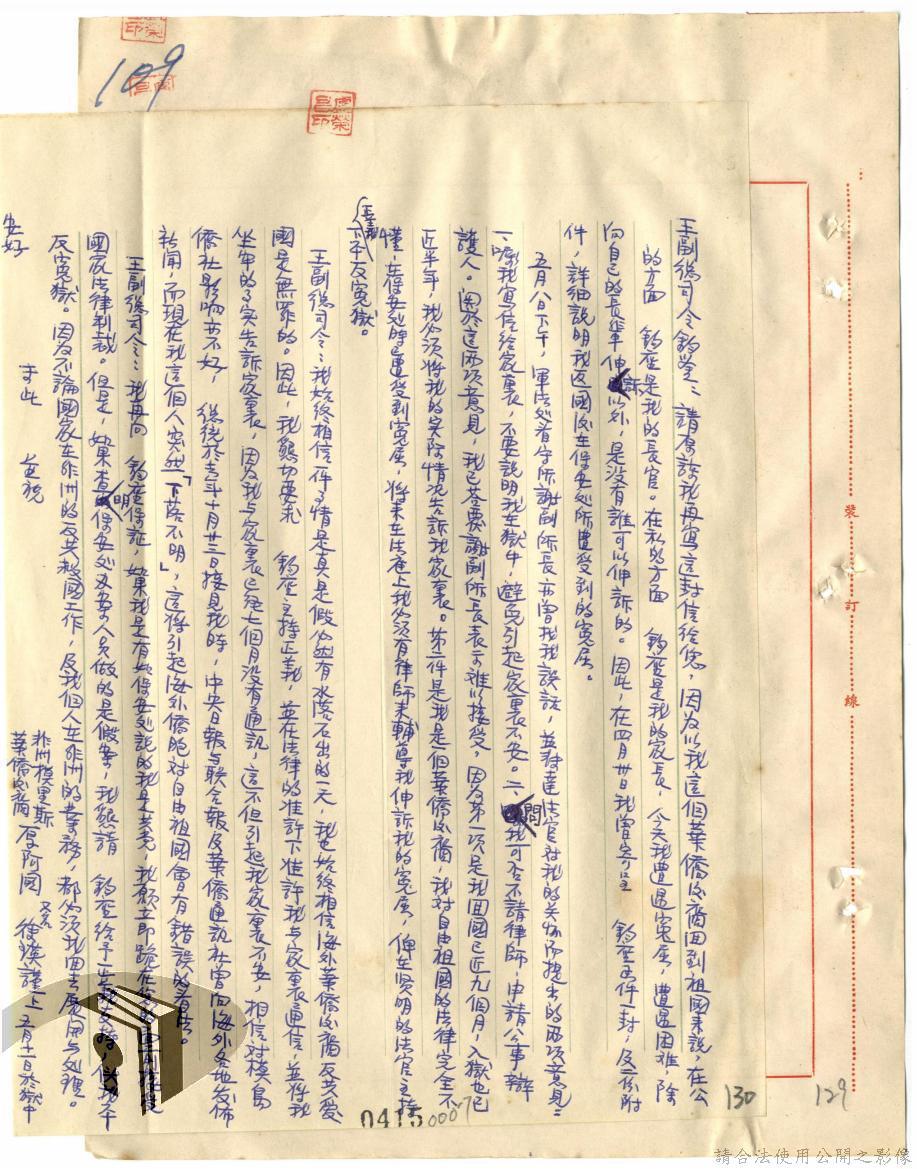 王副總司令鈞鑒：請原諒我再寫這封信給您，因為以我這個華僑後裔回到祖國來說，在公
的方面　鈞座是我的長官。在私的方面　鈞座是我的家長，今天我遭遇冤屈，遭遇困難，除
向自己的長輩伸訴以外，是沒有誰可以伸訴的。因此，在四月卅日我曾寄呈　鈞座函件一封，及一份附
件，詳細說明我返國後在保安處所遭受到的冤屈。
五月八日下午，軍法處看守所謝副所長亦曾找我談話，並轉達法官對我的关怀而提出的兩項意見：
一、嘱我寫信給家裏，不要說明我在獄中，避免引起家裏不安。二、問我可否不請律師，申請公事辯
護人。因於這兩項意見，我已答覆謝副所長表示难以接受，因為第一項是我回國已近九個月，入獄也已
近半年，我必須將我的实际情況告訴我家裏。第二件是我是個華僑後裔，我对自由祖國的法律完全不
懂，在保安處時已遭受到冤屈，將來在法庭上我必須有律師來輔導我伸訴我的冤屈，俾在賢明的法官主持
下平反冤獄。
王副總司令：我始終相信一件事情是真是假必有水落石出的一天，我也始終相信海外華僑後裔反共愛
國是無罪的。因此，我懇切要求　鈞座主持正義，並在法律的准許下准許我与家裏通信，並將我
坐牢的事实告訴家裏，因為我与家裏已經七個月沒有通訊，這不但引起我家裏不安，相信对模島
僑社影响亦不好，　總統於去年十月廿三日接見我時，中央日報与联合報及華僑通訊社曾向海外各地发佈
新聞，而現在我這個人突然「下落不明」，這將引起海外僑胞对自由祖國會有錯誤的看法。
王副總司令：我再向　鈞座保証，如果我是有如保安處說的我是共秀，我願立即跪在您的面前接受
國家法律制裁。但是，如果查明保安處及辦案人員做的是假案，我懇請　鈞座給予
反冤獄。因為不論國家在非洲的反共救國工作，及我個人在非洲的業務，都必須我回去展開与處理。
耑此　並祝
安好
非洲模里斯
華僑後裔
謹上　五月十日於獄中
109
0415
0007
130
129
裝訂線
請合法使用公開之影像